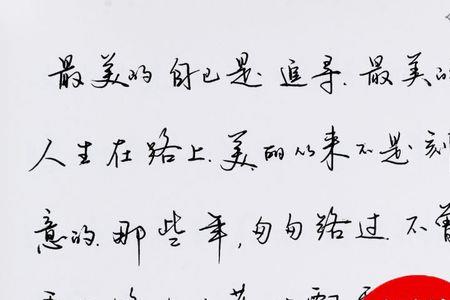 最美的自己是追寻.最美的
人生在路上.美的从来不是刻
意的.那些年,匆匆路过.不曾